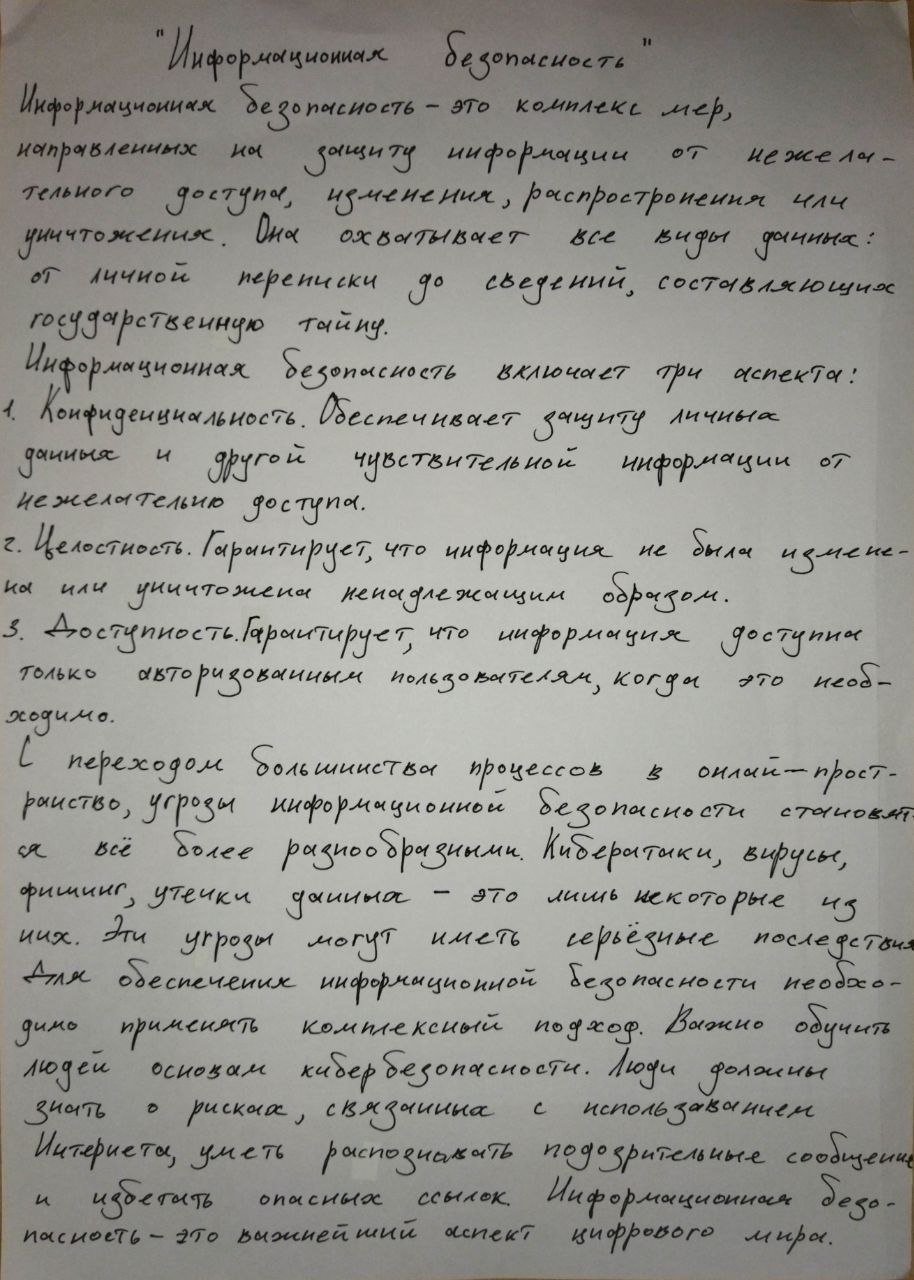 "Информационная безопасность"
Информационная безопасность – это комплекс мер,
направленных на защиту информации от нежела-
тельного доступа, изменения, распростронения или
уничтожения. Она охватывает все виды данных:
от личной переписки до сведений, составляющих
государственную тайну.
Информационная безопасность включает три аспекта:
1. Конфиденциальность. Обеспечивает защиту личных
данных и другой чувствительной информации от
нежелательно доступа.
2. Целостность. Гарантирует, что информация не была измене-
на или уничтожена ненадлежащим образом.
3. Доступность. Гарантирует, что информация доступна
только авторизованным пользователям, когда это необ-
ходимо.
С переходом большинства процессов в онлайн-прост-
ранство, угрозы информационной безопасности становят-
ся всё более разнообразными. Кибератаки, вирусы,
фишинг, утечки данных – это лишь некоторые из
них. Эти угрозы могут иметь серьёзные последствия
Для обеспечения информационной безопасности необхо-
димо применять комплексный подход. Важно обучить
людей основам кибербезопасности. Люди должны
знать о рисках, связанных с использаванием
Интернета, уметь распознавать подозрительные сообщения
и избегать опасных ссылок. Информационная безо-
пасность – это важнейший аспект цифрового мира.